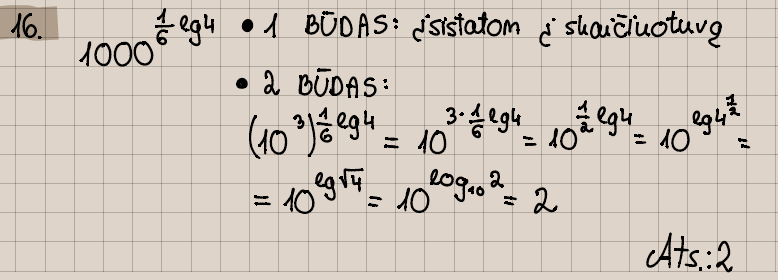 16. 1000^{\frac{1}{6} lg4} • 1 BŪDAS: įsistatom į skaičiuotuvą
• 2 BŪDAS:
(10^3)^{\frac{1}{6} lg4} = 10^{3·\frac{1}{6} lg4} = 10^{\frac{1}{2} lg4} = 10^{lg4^{\frac{1}{2}}} =
= 10^{lg√4} = 10^{log_{10}2} = 2
Ats.: 2